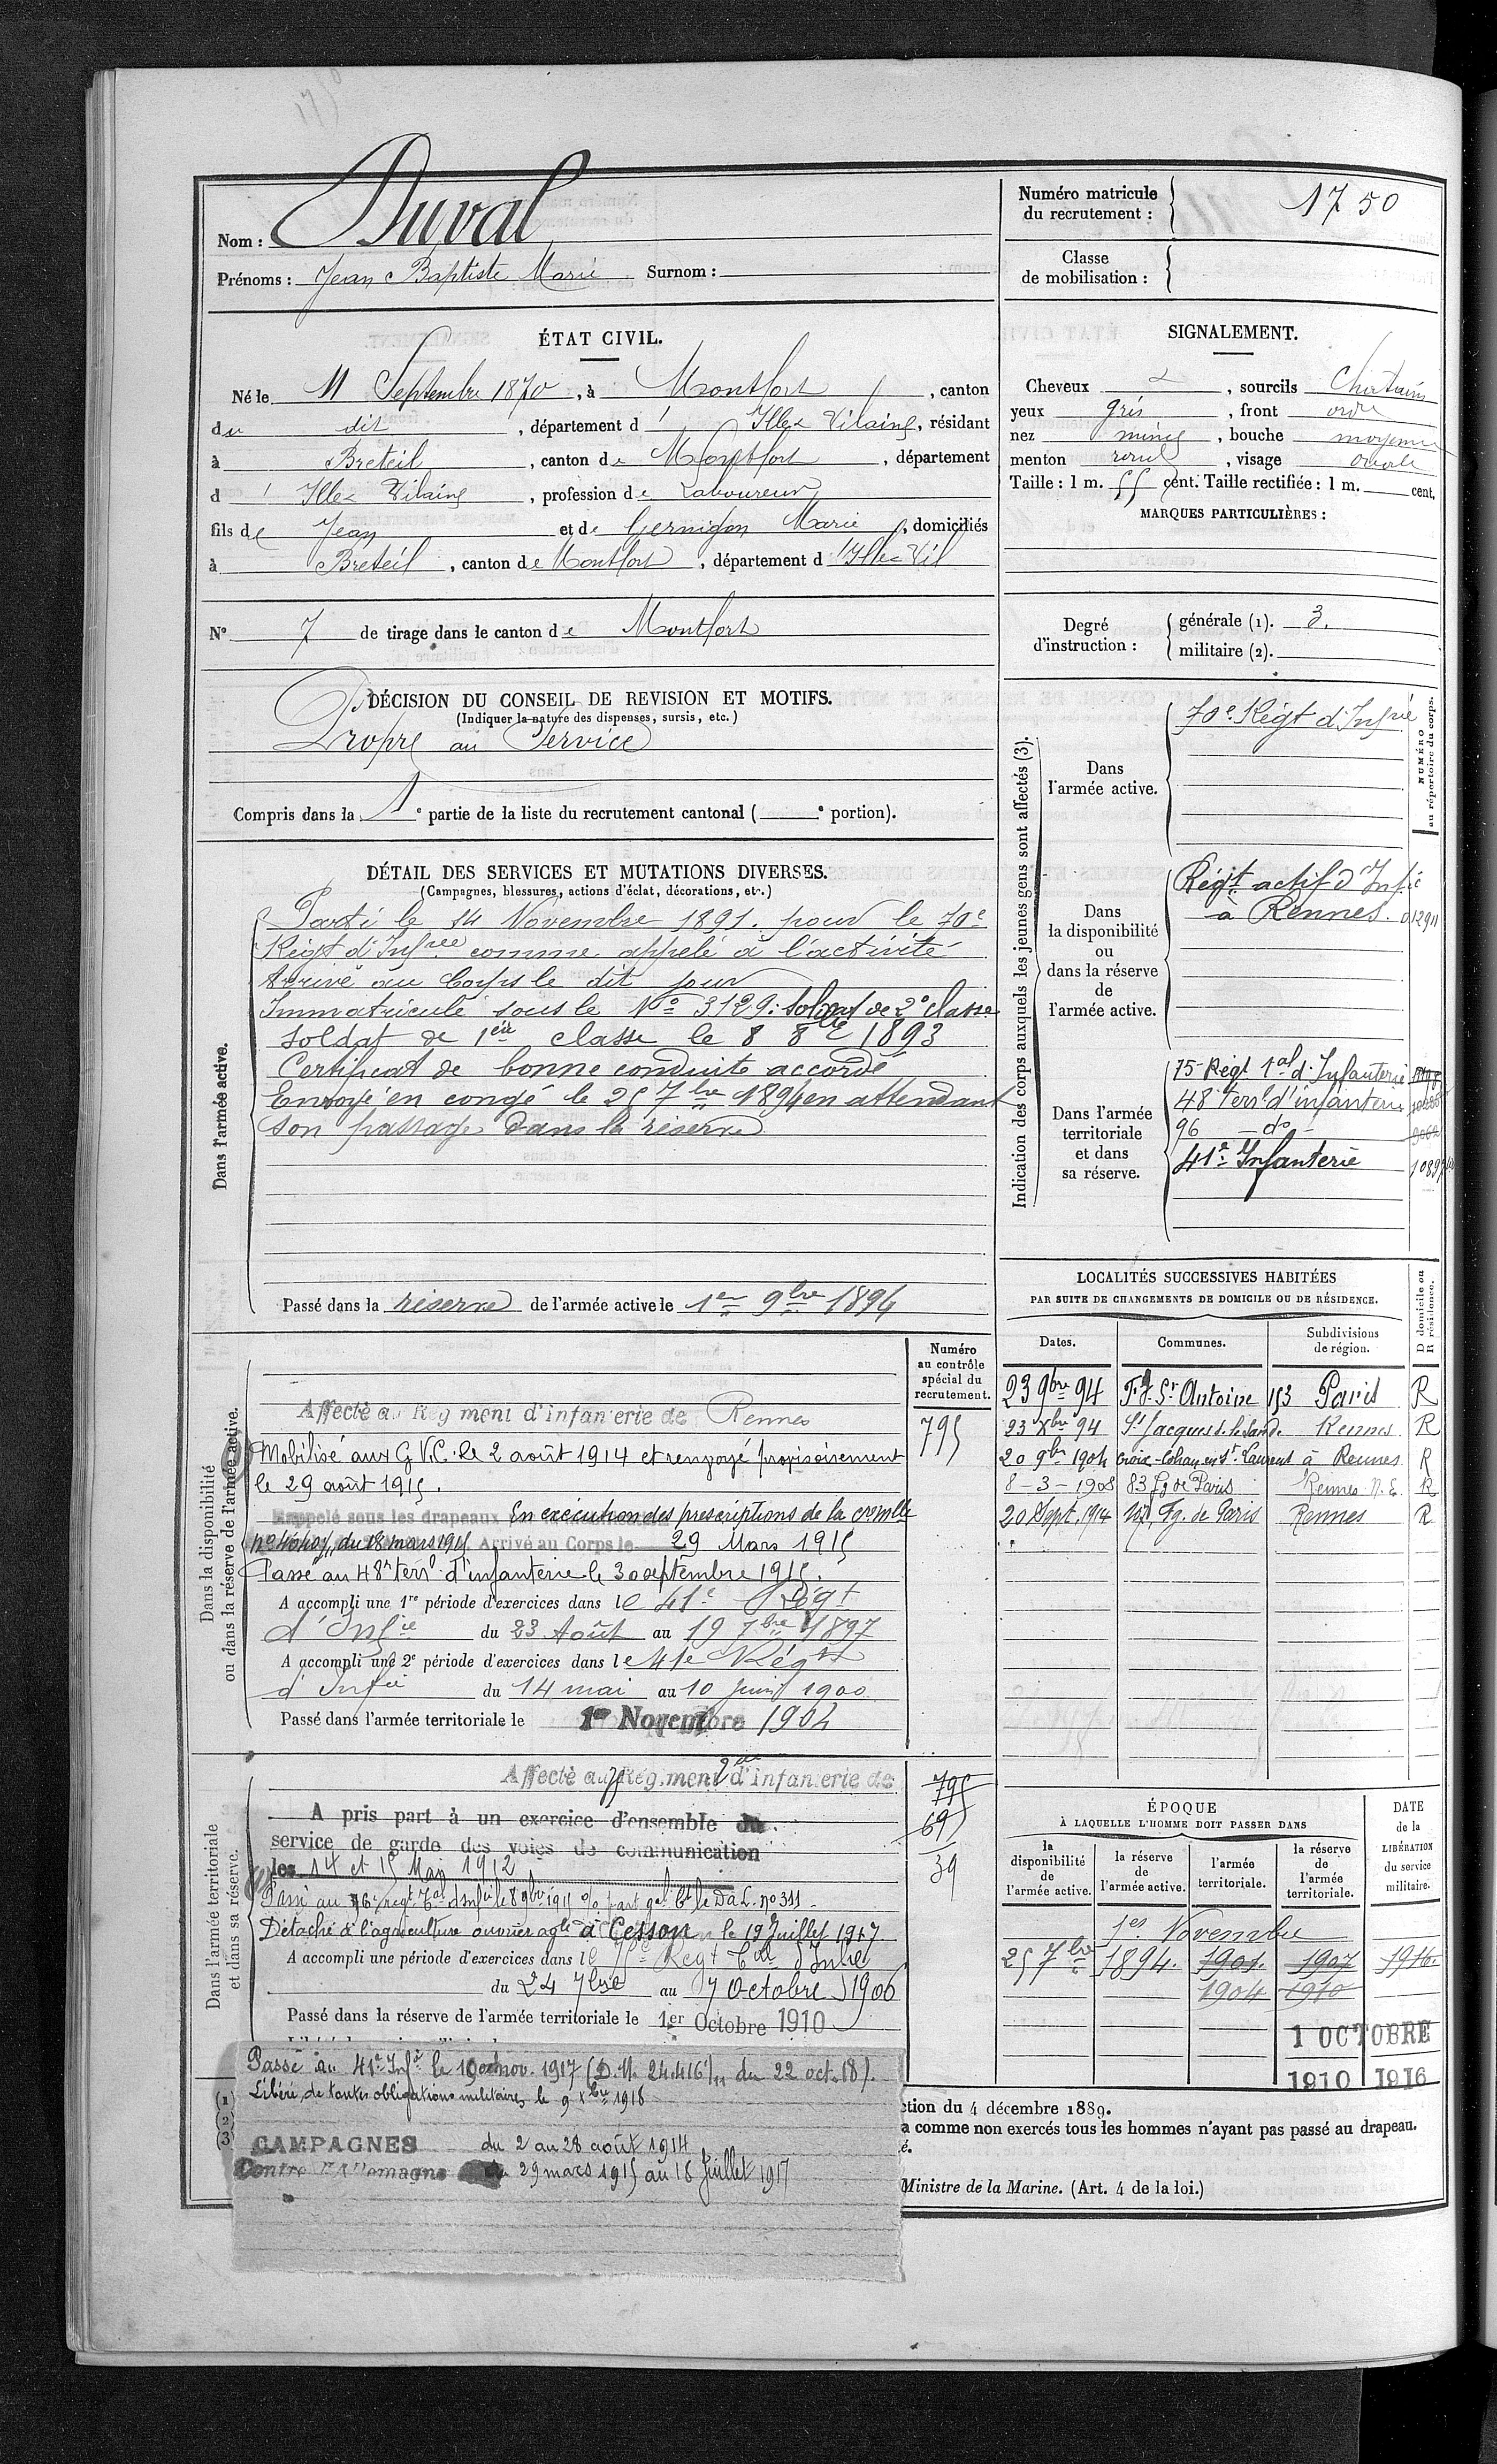 Nom : Duval
Prénoms : Jean Baptiste Marie Surnom :
Numéro matricule du recrutement : 1750
Classe de mobilisation :
ÉTAT CIVIL.
Né le 11 Septembre 1870, à Montfort, canton
du dit, département d' Ille & Vilaine, résidant
à Breteil, canton de Montfort, département
d' Ille & Vilaine, profession de Laboureur
fils de Jean et de Gernigon Marie, domiciliés
à Breteil, canton de Montfort, département d'Ille & Vil
N° 7 de tirage dans le canton de Montfort
DÉCISION DU CONSEIL DE REVISION ET MOTIFS.
(Indiquer la nature des dispenses, sursis, etc.)
Propre au Service
Compris dans la 1e partie de la liste du recrutement cantonal ( e portion).
SIGNALEMENT.
Cheveux , sourcils Chatains
yeux gris, front ord
nez mince, bouche moyenne
menton rond, visage ovale
Taille : 1 m. 55 cent. Taille rectifiée : 1 m. cent.
MARQUES PARTICULIÈRES :
Degré d'instruction :
générale (1). 3.
militaire (2).
DÉTAIL DES SERVICES ET MUTATIONS DIVERSES.
(Campagnes, blessures, actions d'éclat, décorations, etc.)
Dans l'armée active.
Parti le 14 Novembre 1891. pour le 70e
Régt d'Infrie comme appelé à l'activité
Arrivé au Corps le dit jour
Immatriculé sous le No 3129. soldat de 2e classe
Soldat de 1ère classe le 8 8bre 1893
Certificat de bonne conduite accordé
Envoyé en congé le 25 7bre 1894 en attendant
son passage dans la réserve
Passé dans la réserve de l'armée active le 1er 9bre 1894
Indication des corps auxquels les jeunes gens sont affectés (3).
NUMÉRO au répertoire du corps.
Dans l'armée active.
70e Régt d'Infrie
Dans la disponibilité ou dans la réserve de l'armée active.
Régt actif d'Infie
à Rennes. 012911
Dans l'armée territoriale et dans sa réserve.
75e Régt Tal d'Infanterie
48 terr d'infanterie
96 — do —
41e Infanterie
Dans la disponibilité ou dans la réserve de l'armée active.
Numéro au contrôle spécial du recrutement.
795
Affecté au Régiment d'infanterie de Rennes
Mobilisé aux G.V.C. le 2 août 1914 et renvoyé provisoirement
le 29 août 1915.
Rappelé sous les drapeaux En exécution des prescriptions de la cre mlle
du 18 mars 1915 Arrivé au Corps le 29 Mars 1915
Passé au 48e terr d'infanterie le 30 septembre 1915.
A accompli une 1re période d'exercices dans le 41e Régt
d'Infie du 23 Août au 19 7bre 1897
A accompli une 2e période d'exercices dans le 41e Régt
d'Infie du 14 mai au 10 Juin 1900
Passé dans l'armée territoriale le 1er Novembre 1904
LOCALITÉS SUCCESSIVES HABITÉES
PAR SUITE DE CHANGEMENTS DE DOMICILE OU DE RÉSIDENCE.
Dates. Communes. Subdivisions de région. D domicile ou R résidence.
23 9bre 94 Fg St Antoine 153 Paris R
23 Xbre 94 St Jacques d. la Lande Rennes R
20 9bre 1904 Croix-Cohan en St Laurent à Rennes R
8-3-1908 83 Fg de Paris Rennes N.E. R
20 Sept. 1914 Fg. de Paris Rennes R
Dans l'armée territoriale et dans sa réserve.
795
695
39
Affecté au 75 Régiment d'infanterie de
A pris part à un exercice d'ensemble du
service de garde des voies de communication
les 14 et 15 Mars 1912
Passé au 96e régt Tal d'Infie le 8 9bre 1915
Détaché à l'agriculture ouvrier agle à Cesson le 19 Juillet 1917
A accompli une période d'exercices dans le 75e Régt Tal d'Infie
du 24 7bre au 7 Octobre 1906
Passé dans la réserve de l'armée territoriale le 1er Octobre 1910
Passé au 41e Infie le 10 nov. 1917 (D.M. 24.416 du 22 oct. 18).
Libéré de toutes obligations militaires le 9 Xbre 1918
CAMPAGNES du 2 au 28 août 1914
Contre l'Allemagne du 29 mars 1915 au 18 Juillet 1917
ÉPOQUE
À LAQUELLE L'HOMME DOIT PASSER DANS
la disponibilité de l'armée active. la réserve de l'armée active. l'armée territoriale. la réserve de l'armée territoriale.
DATE de la LIBÉRATION du service militaire.
1er Novembre
25 7bre 1894. 1901. 1907 1916.
1904 1910
1 OCTOBRE
1910 1916
(1)
(2)
(3)
ction du 4 décembre 1889.
a comme non exercés tous les hommes n'ayant pas passé au drapeau.
é.
Ministre de la Marine. (Art. 4 de la loi.)